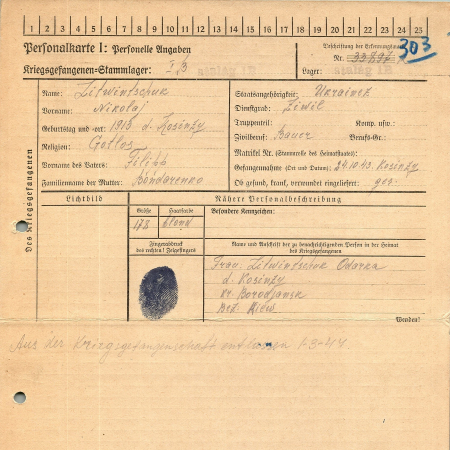 1 2 3 4 5 6 7 8 9 10 11 12 13 14 15 16 17 18 19 20 21 22 23 24 25
Personalkarte I: Personelle Angaben
Beschriftung der Erkennungsmarke
303
Nr. 33897
Kriegsgefangenen-Stammlager: I B
Stalag I B
Lager: Stalag I B
Des Kriegsgefangenen
Name: Litwintschuk
Vorname: Nikolaj
Geburtstag und -ort: 1913 d. Kosinzy
Religion: Gotlos
Vorname des Vaters: Filipp
Familienname der Mutter: Bondarenko
Staatsangehörigkeit: Ukrainez
Dienstgrad: Ziwil
Truppenteil: Komp. usw.:
Zivilberuf: Bauer Berufs-Gr.:
Matrikel Nr. (Stammrolle des Heimatstaates):
Gefangennahme (Ort und Datum): 24.10.43. Kosinzy
Ob gesund, krank, verwundet eingeliefert: ges.
Lichtbild
Nähere Personalbeschreibung
Größe Haarfarbe Besondere Kennzeichen:
173 blond
Fingerabdruck
des rechten! Zeigefingers
Name und Anschrift der zu benachrichtigenden Person in der Heimat
des Kriegsgefangenen
Frau. Litwintschuk Odarka
d. Kosinzy
Kr. Borodjansk
Bez. Kiew
Wenden!
Aus der Kriegsgefangenschaft entlassen 1-3-44